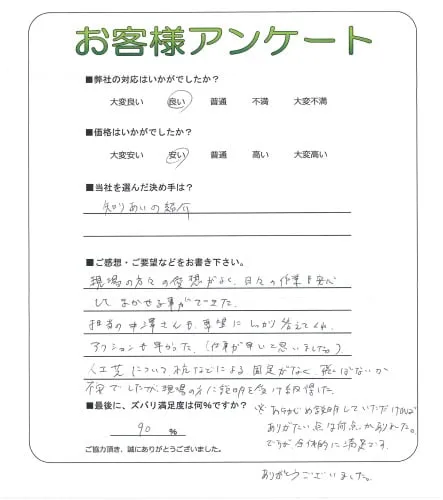 お客様アンケート
■弊社の対応はいかがでしたか？
大変良い 良い 普通 不満 大変不満
■価格はいかがでしたか？
大変安い 安い 普通 高い 大変高い
■当社を選んだ決め手は？
知りあいの紹介
■ご感想・ご要望などをお書き下さい。
現場の方々の愛想がよく、日々の作業も安心
してまかせる事ができました。
担当の中澤さんも要望にしっかり答えてくれ、
アクションも早かった。(仕事が早いと思いました。)
人工芝について杭などによる固定がなく、飛ばないか
不安でしたが、現場の方に説明を受け納得した。
■最後に、ズバリ満足度は何%ですか？
90 %
※あらかじめ説明していただければ
ありがたい点は何点かありました。
ですが全体的に満足です。
ご協力頂き、誠にありがとうございました。
ありがとうございました。